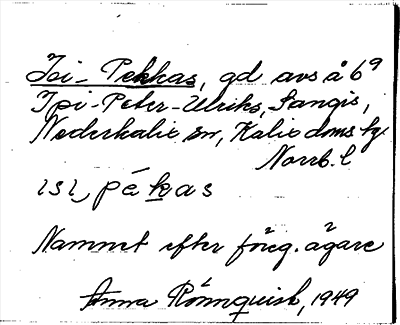 Isi-Pekkas, gd avs å 6⁹
Ipi-Peter-Ulriks, Sangis,
Nederkalix sn, Kalix doms hg
Norrb. l
ısı pékas
Namnet efter föreg. ägare
Anna Rönnquist, 1949